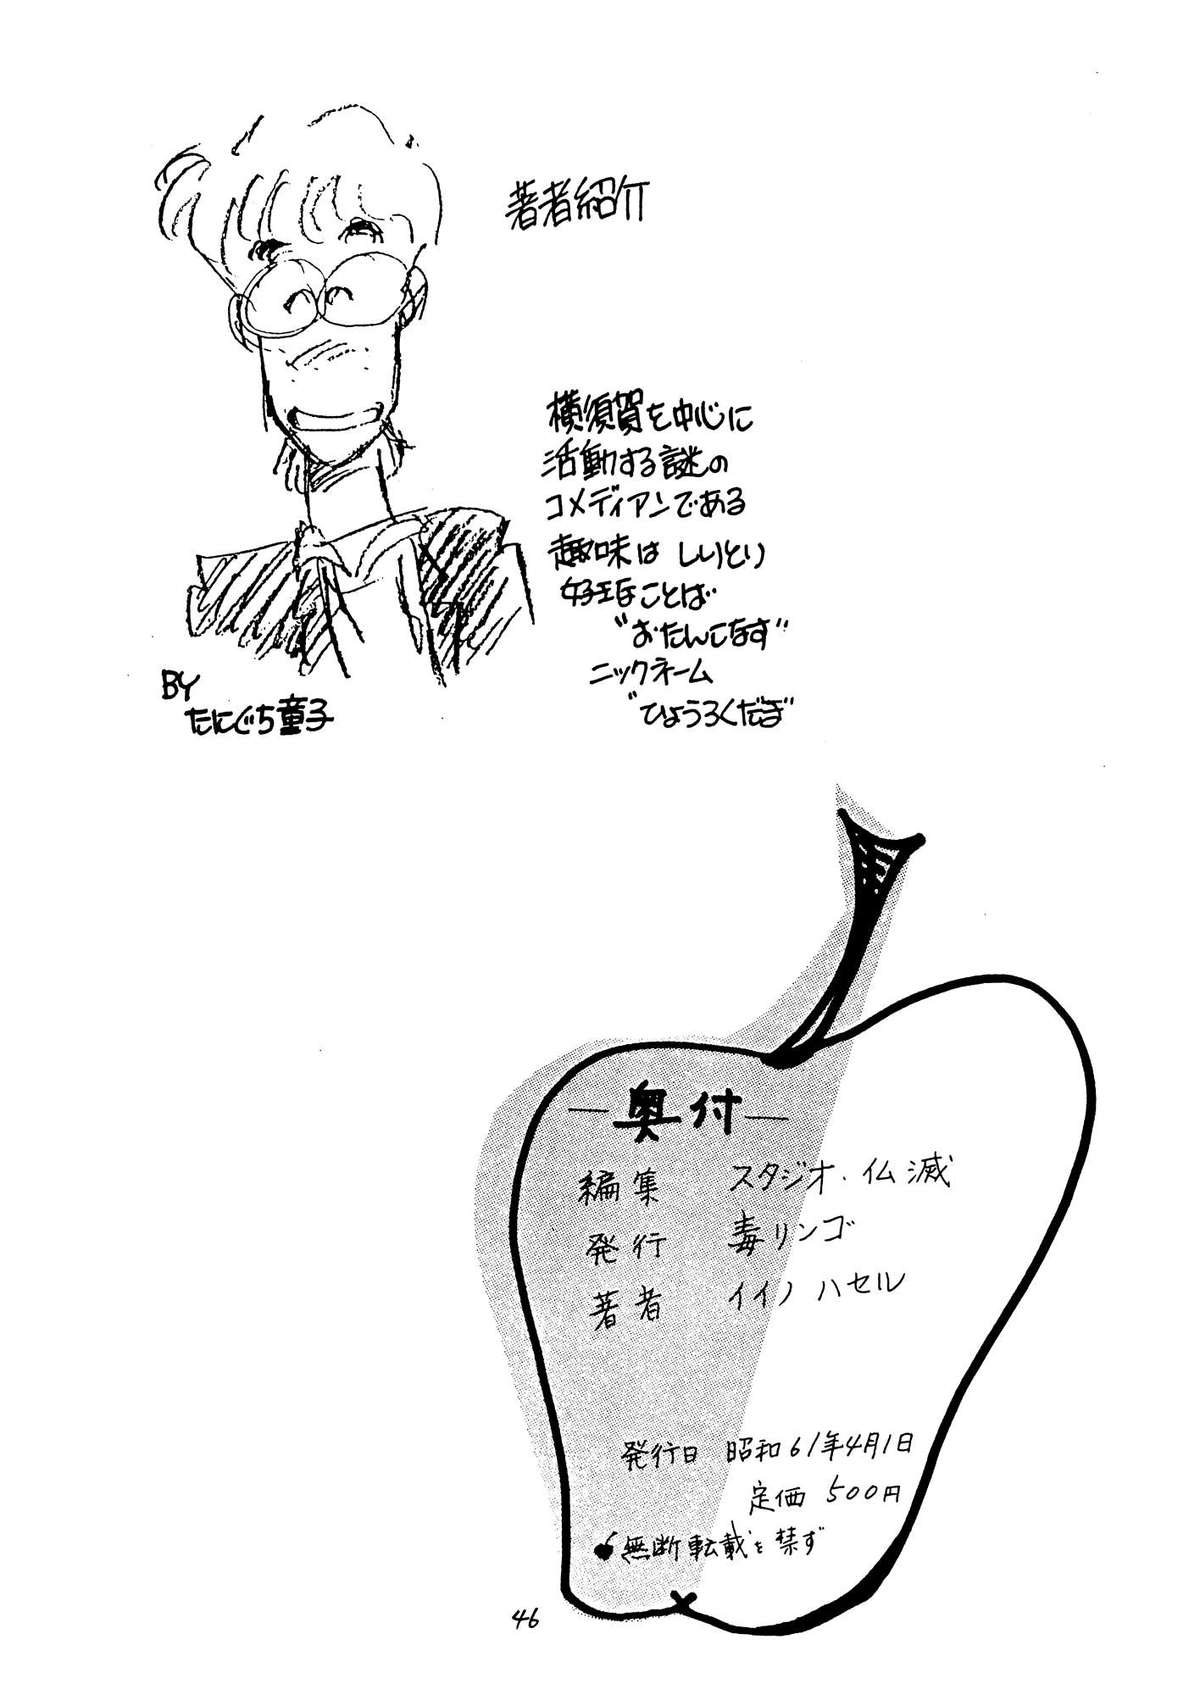 著者紹介
横須賀を中心に
活動する謎の
コメディアンである
趣味は しりとり
好きなことば
"おたんこなす"
ニックネーム
"ひょうろくだま"
BY
たにぐち童子
—奥付—
編集 スタジオ・仏滅
発行 毒リンゴ
著者 イイノ ハセル
発行日 昭和61年4月1日
定価 500円
無断転載を禁ず
46